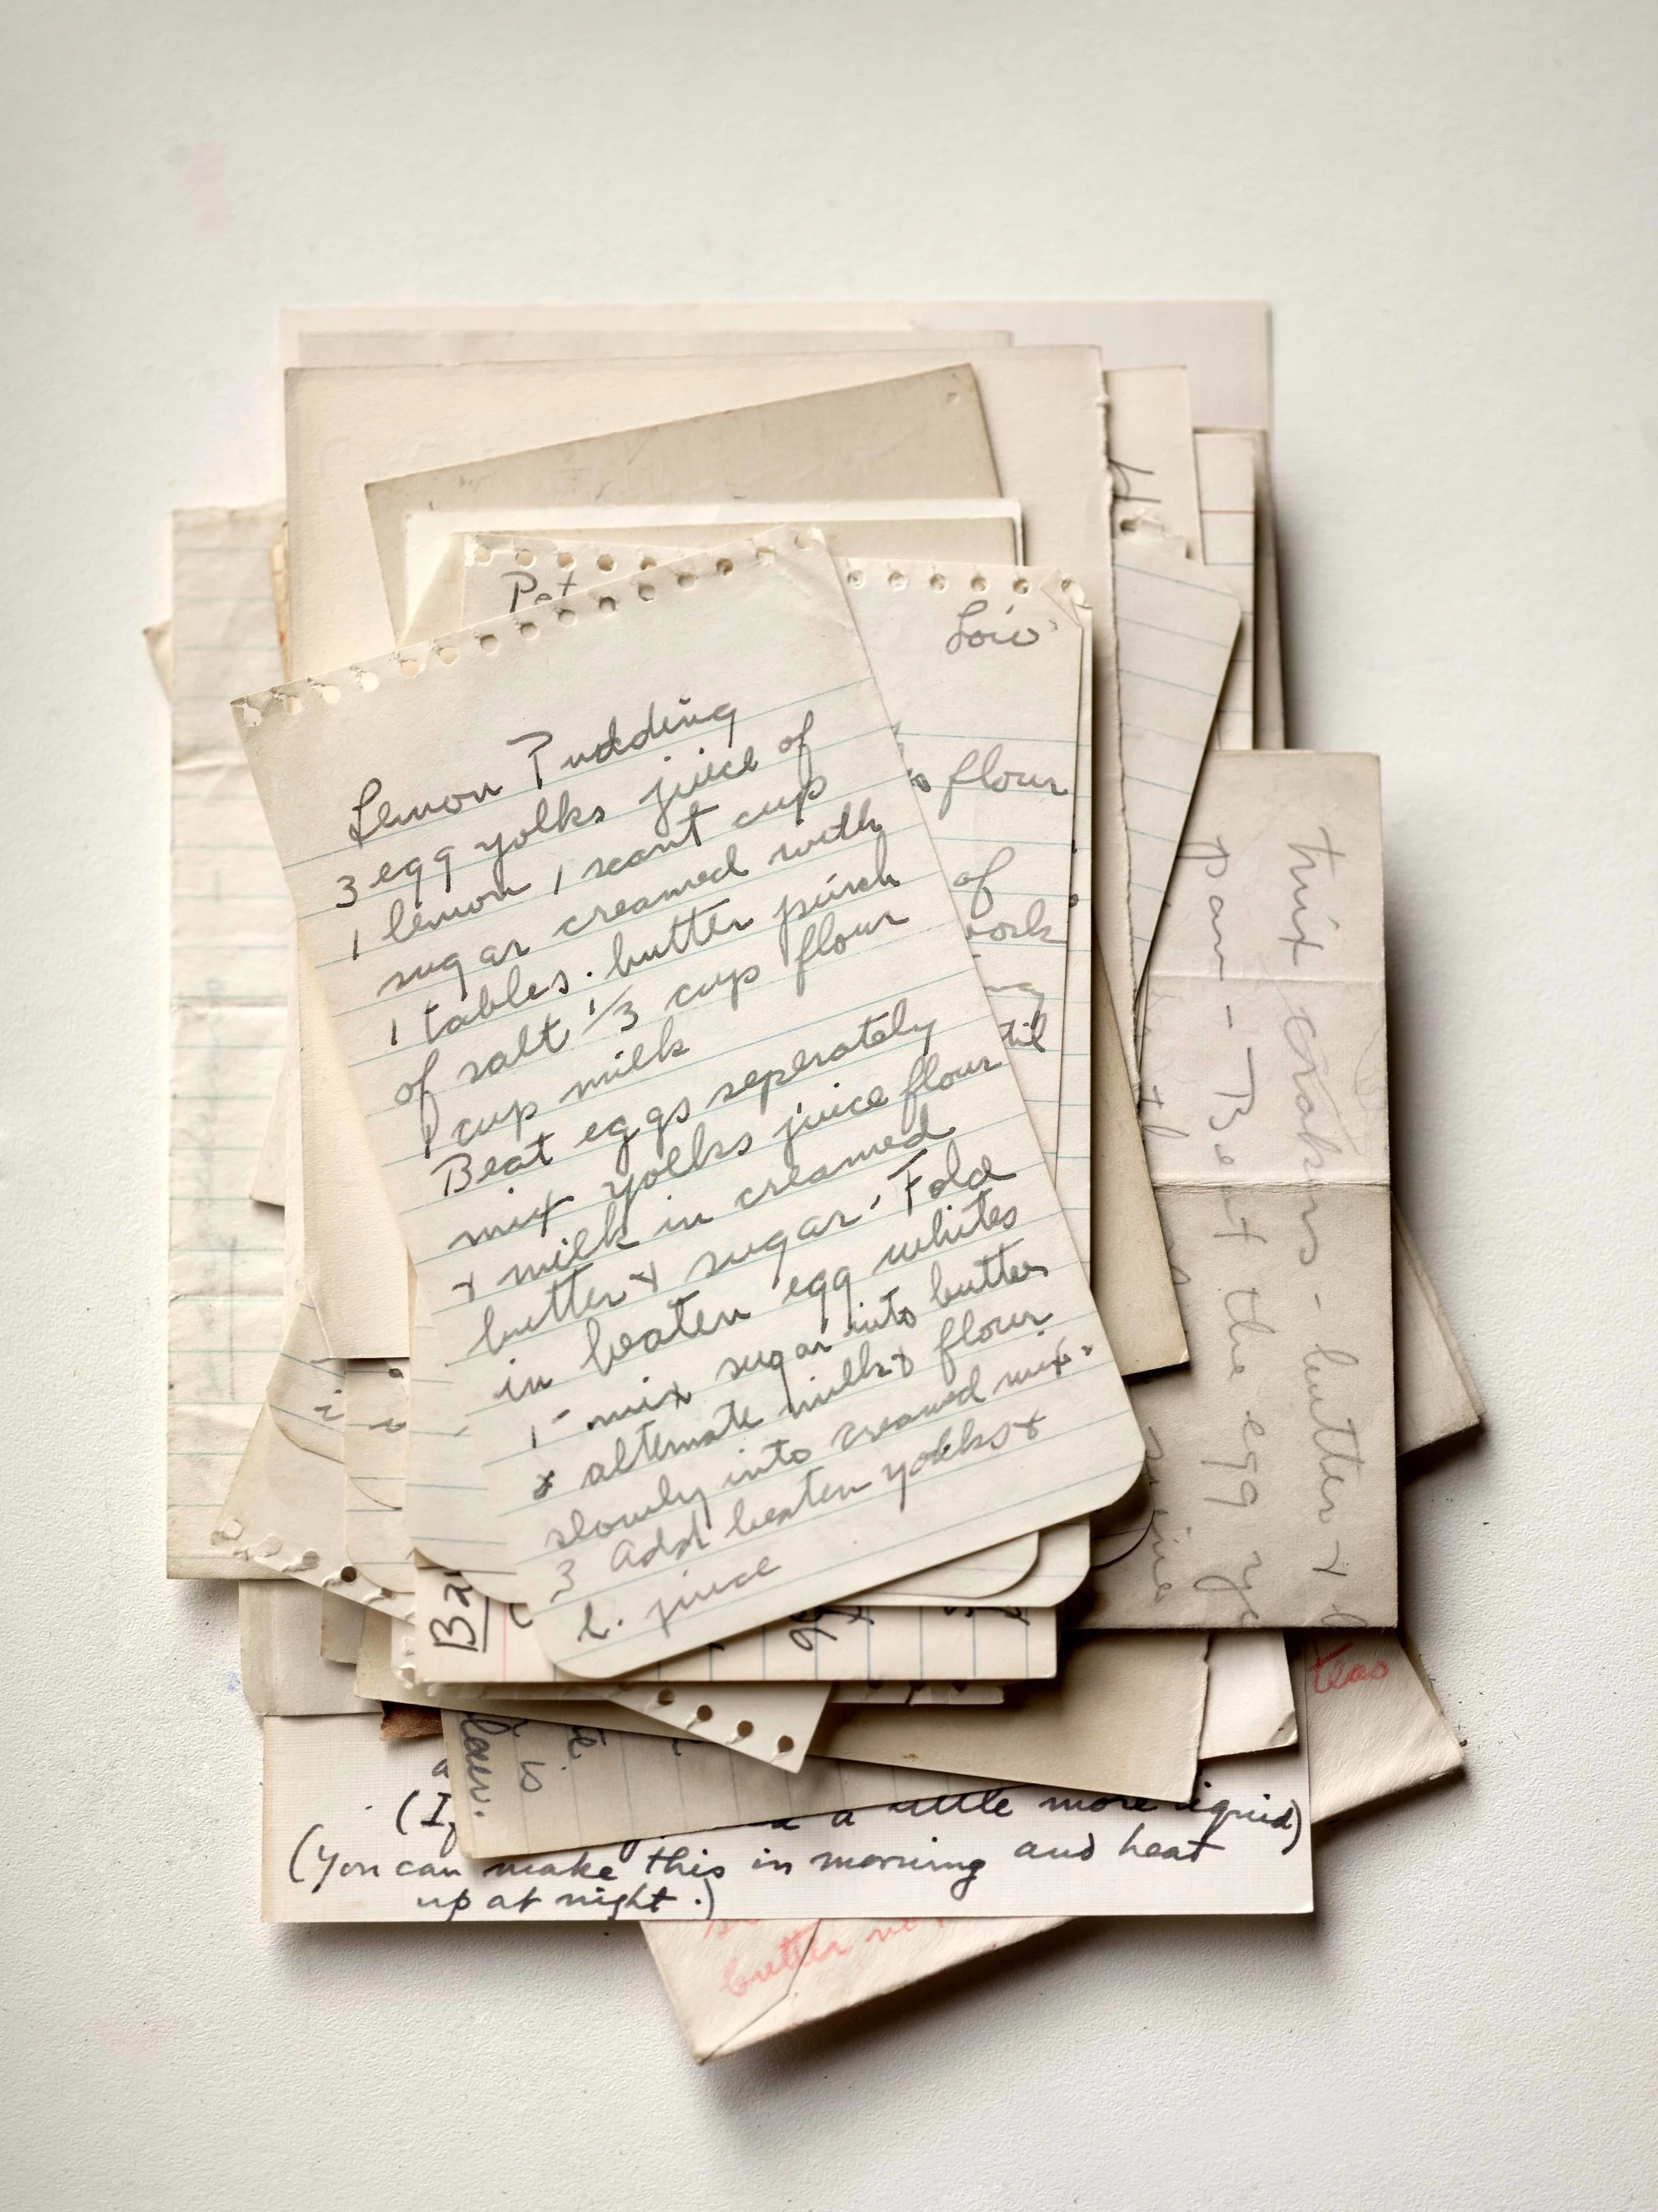 Pat
Lois
Lemon Pudding
3 egg yolks juice of
1 lemon 1 scant cup
sugar creamed with
1 tables. butter pinch
of salt 1/3 cup flour
1 cup milk
Beat eggs seperately
mix yolks juice flour
+ milk in creamed
butter + sugar. Fold
in beaten egg whites
1 - mix sugar into butter
& alternate milk & flour
slowly into creamed mix.
3 Add beaten yolks +
l. juice
flour
of
til
mix crakers - butter +
pan - Beat the egg
teas
is
(If a little more liquid)
(You can make this in morning and heat
up at night.)
butter